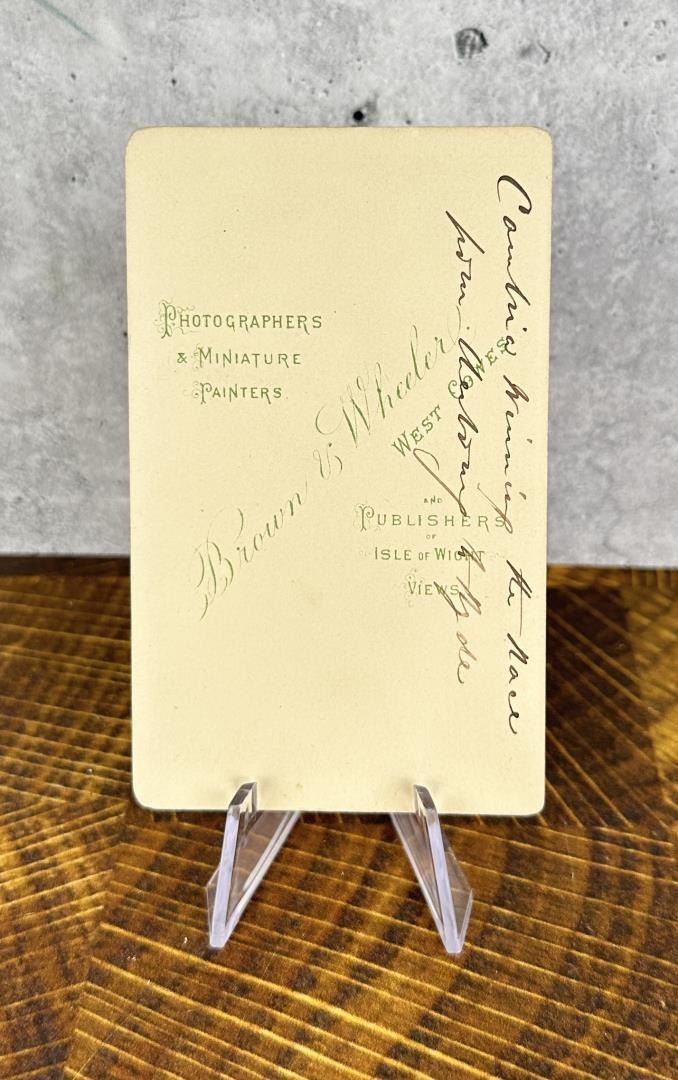 PHOTOGRAPHERS
& MINIATURE
PAINTERS.
Brown & Wheeler
WEST COWES
AND
PUBLISHERS
OF
ISLE OF WIGHT
VIEWS
Cambria Winning the Race
from Cherbourg to Ryde